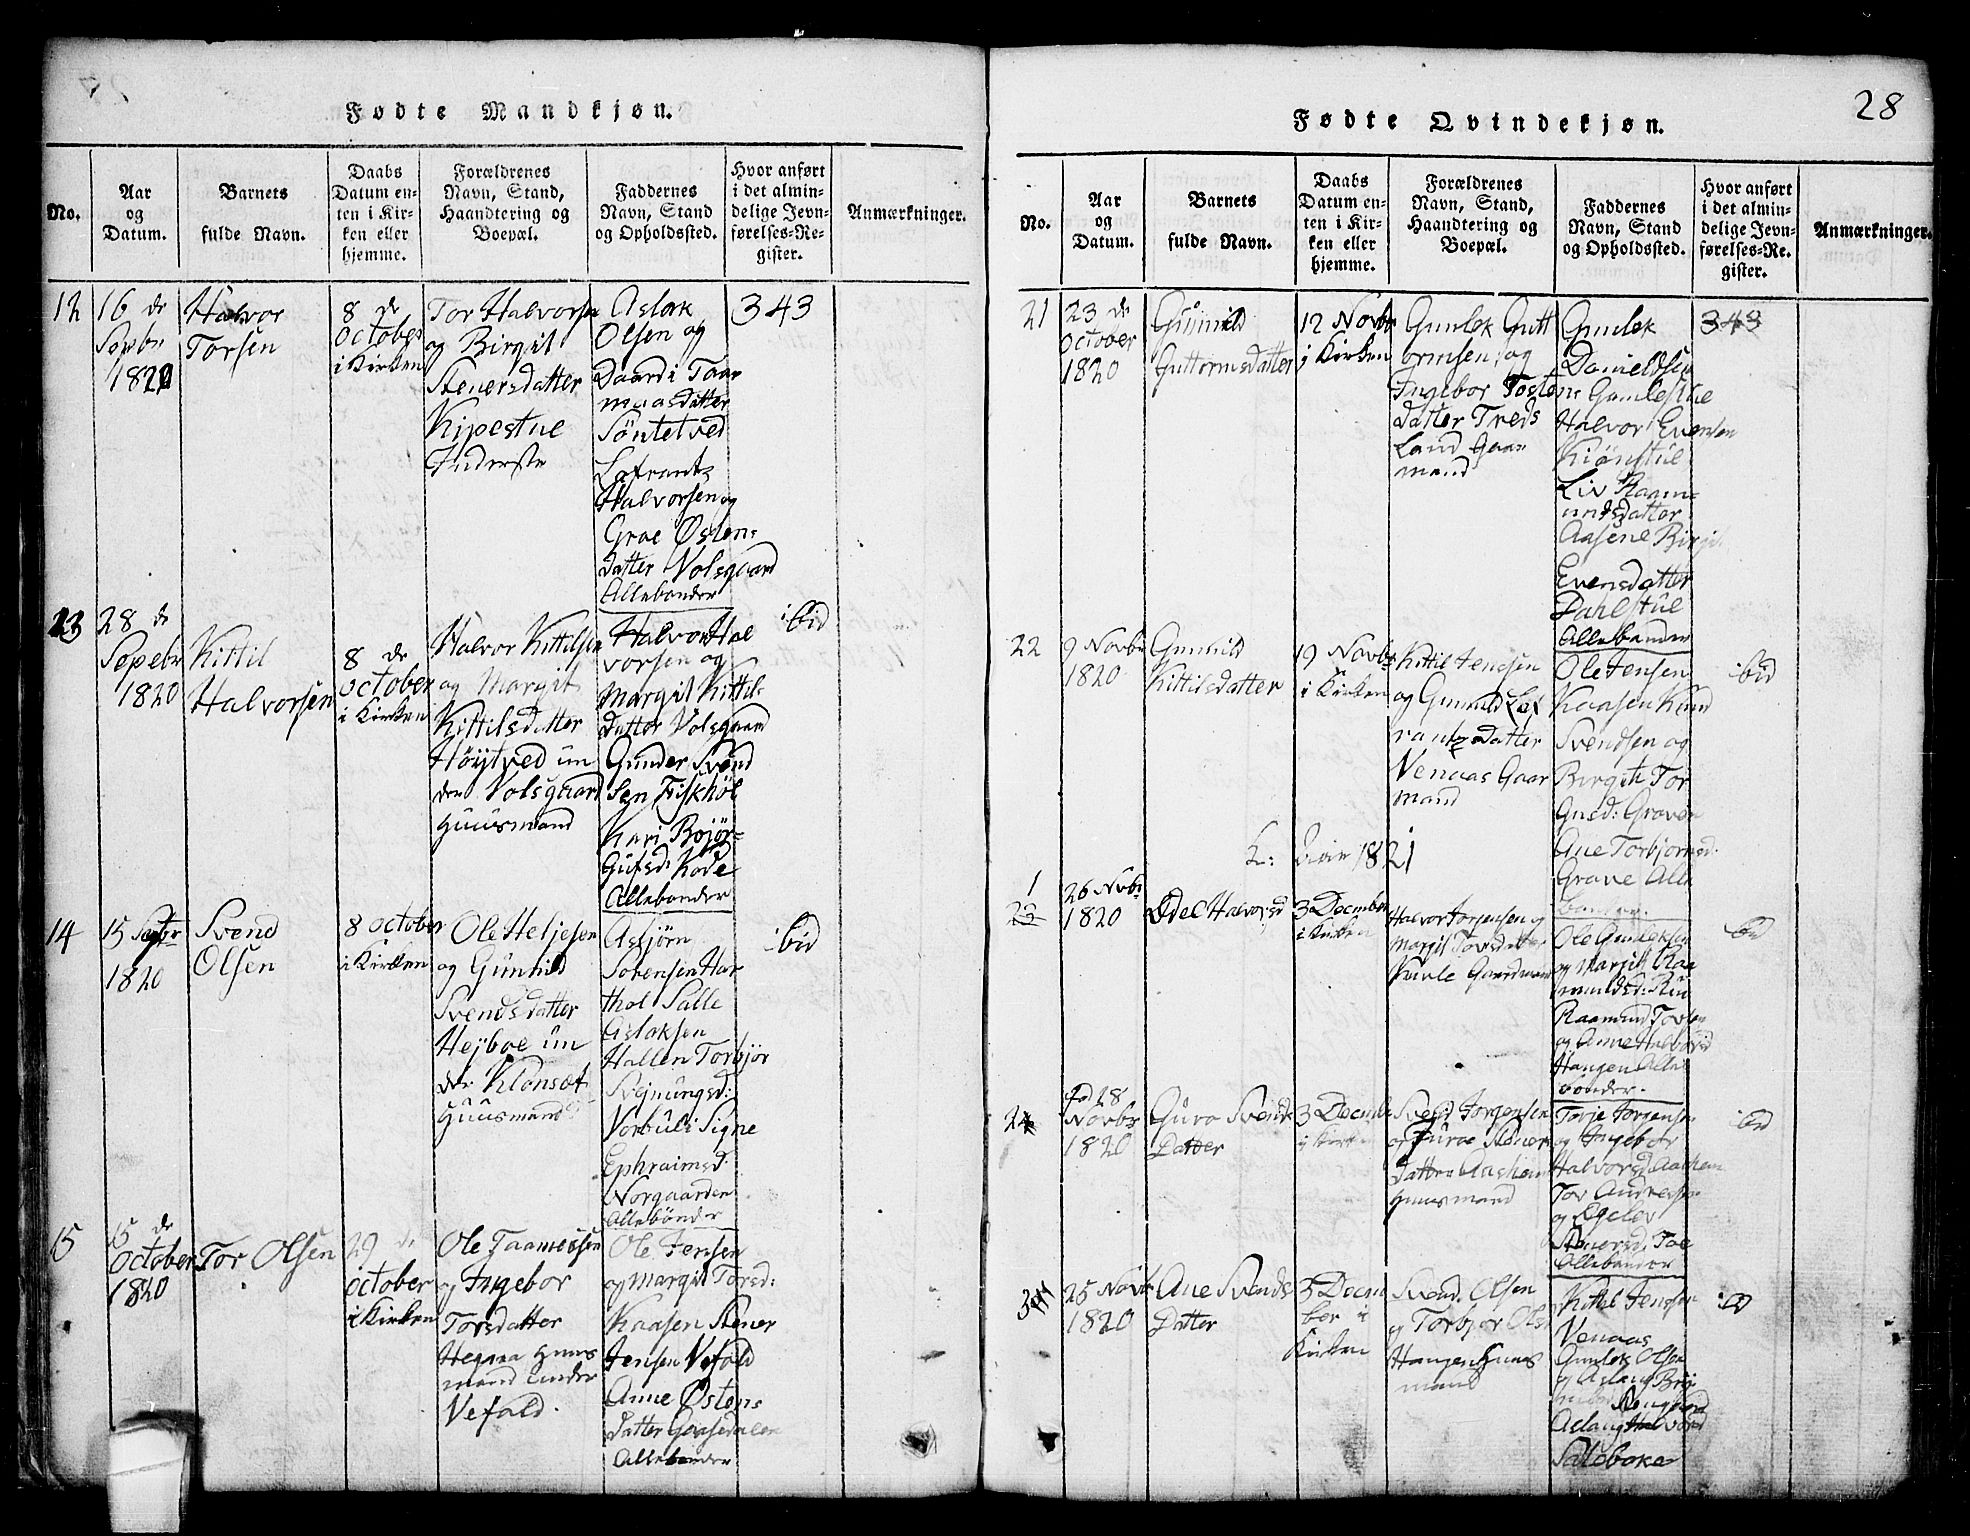 28
Fødte Mandkjøn.
No.
Aar og Datum.
Barnets fulde Navn.
Daabs Datum en-
ten i Kir-
ken eller
hjemme.
Forældrenes
Navn, Stand,
Haandtering og
Boepæl.
Faddernes
Navn, Stand
og Opholdssted.
Hvor anført
i det almin-
delige Jevn-
førelses-Re-
gister.
Anmærkninger.
12
16 de
Sepbr
1820
Halvor
Torsen
8 de
October
i Kirken
Tor Halvorsen
og Birgit
Stenersdatter
Kipestue
Inderste
Aslak
Olsen og
Daardi Taar
maasdatter
Søntetved
Lafrants
Halvorsen og
Groe Østen-
datter Volsgaard
Allebønder
343
13
28 de
Sepebr
1820
Kittil
Halvorsen
8 de
October
i Kirken
Halvor Kittilsen
og Margit
Kittilsdatter
Høytved un
der Volsgaard
Huusmand
Halvor Hal
vorsen og
Margit Kittils
datter Volsgaard
Gunder Svend
sen Fiskhøl
Kari Bojør-
Gufsd: Kode
Allebønder
ibid
14
15 Septbr
1820
Svend
Olsen
8 October
i Kirken
Ole Heljesen
og Gunhild
Svendsdatter
Hejboe un
der Klonset
Huusmand
Asbjørn
Sørensen Har
thol Salle
Aslaksen
Hallen Torbjør
Svejnungsd:
Vorbuli Signe
Ephraimsd:
Norgaarden
Allebønder
ibid
15
15 de
October
1820
Tor Olsen
29 de
October
i Kirken
Ole Taameesen
og Ingebor
Torsdatter
Hegna Huus
mand under
Vefald.
Ole Jensen
og Margit Torsd:
Kaasen Stener
Jensen Vefald
Anne Østens
datter Gaasedalen
Allebønder
Fødte Qvindekjøn.
No.
Aar og Datum.
Barnets fulde Navn.
Daabs
Datum en-
ten i Kir-
ken eller
hjemme.
Forældrenes
Navn, Stand,
Haandtering og
Boepæl.
Faddernes
Navn, Stand
og Opholdssted.
Hvor anført
i det almin-
delige Jevn-
førelses-Re-
gister.
Anmærkninger.
21
23 de
October
1820
Gunnild
Guttormsdatter
12 Novbr
i Kirken
Gunlek Gutt
ormsen, og
Ingebor Tosten
datter Treds
Land Gaar
mand
Gunlek
Danieldsen
Gamlestue
Halvor Evensen
Kiønstul
Liv Raam-
undsdatter
Aasene Birjit
Evensdatter
Dahlstul
Allebønder
343
22
9 Novbr
1820
Gunnild
Kittilsdatter
19 Novbr
i Kirken
Kittil Jensen
og Gunnild Laf
rantzdatter
Venaas Gaar
mand
Ole Jensen
Kaasen Knud
Svendsen og
Birgith Tor
Gusd: Graven
Ane Torbjornsd.
Grave Alle
bønder.
ibid
1821
1
23
26 Novbr
1820
Edel Halvorsd
3 December
i Kirken
Halvor Jorgensen og
Margit Torsdatter
Gaardmand
Ole Gunleksen
og Margit Raa
mundsd:
Raamund Torsen
og Anne Halvorsd
Haugen Alle
bønder.
ibid
24
Fød 28
Novbr
1820
Guro Svends
Datter
3 Decembr
i Kirken
Svend Jorgensen
og Jurae Stener
datter Aasheim
Huusmand
Torje Jorgensen
og Ingebor
Halvorsd Aasheim
Tor Andersen
og Egelev
Stenersd: Toe
Allebønder
ibid
3
25 Novbr
1820
Ane Svends
Datter
3 Decem
ber i
Kirken
Svend Olsen
og Torbjor Ols
Haugen Huus
mand
Kittil Jensen
Venaas
Gunlek Olsen
og Aslaug
Aslaug Halvorsd
Saleboke